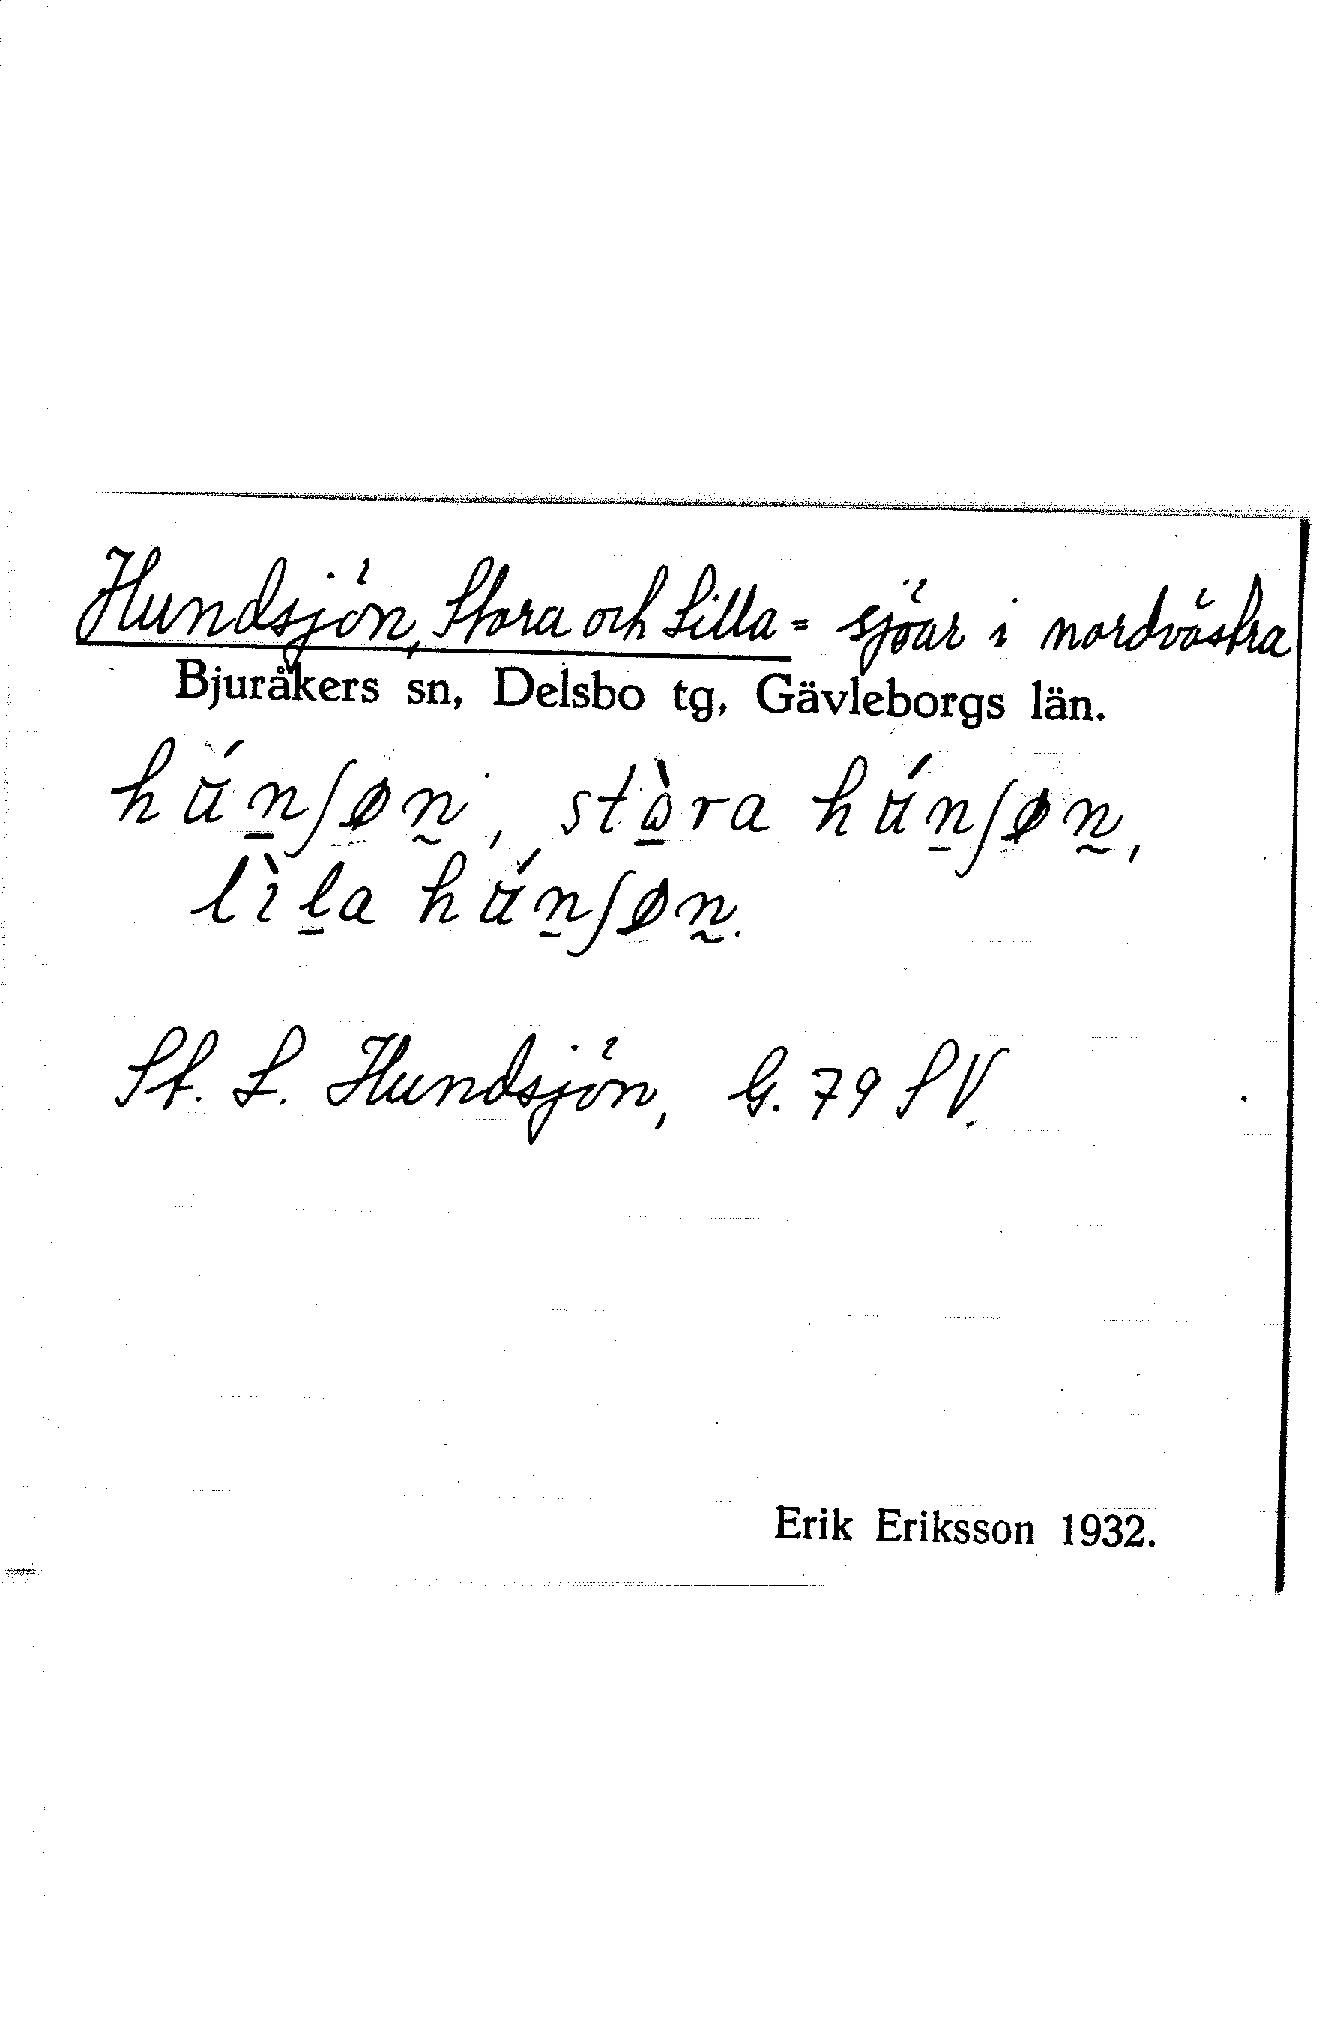 Hundsjön, Stora och Lilla = sjöar i nordvästra
Bjuråkers sn, Delsbo tg, Gävleborgs län.
hʉ́n̲ʃøn̰, stò̲ra hʉ́n̲ʃøn̰,
lìl̲a hʉ́n̲ʃøn̰.
St. L. Hundsjön, G. 79 SV.
Erik Eriksson 1932.